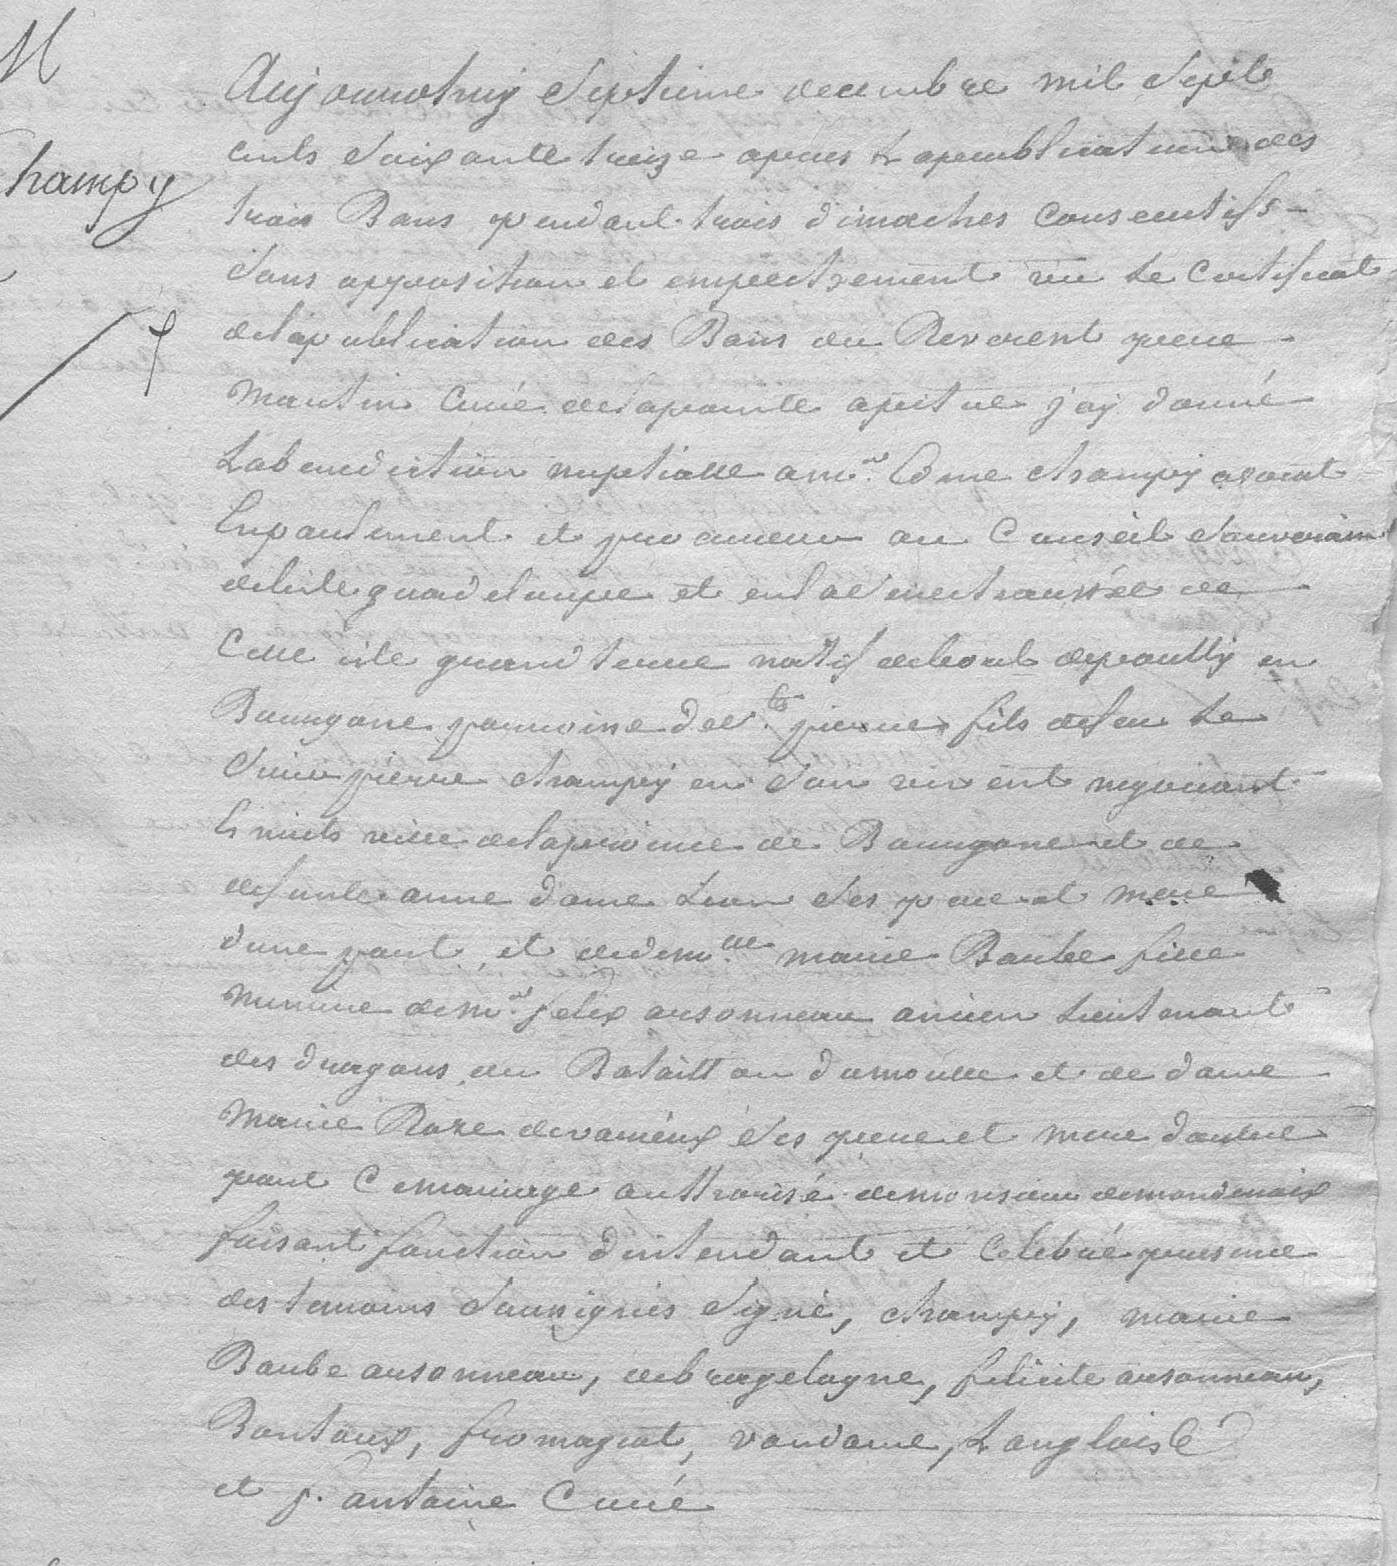 M
Champy
Aujourdhuy Septieme decembre mil Sept
cents Soixante treize apres La publication des
trois Bans pendant trois dimaches consecutifs
Sans opposition et empechement vu Le Certificat
de la publication des Bans du Reverent pere
Martin Curé de la pointe apitre j'ay donné
La benediction nuptialle a mr. Come champy avocat
En parlement et procureur au Conseil Souverain
de lisle guadeloupe et en la Senechaussée de
Cette isle grand terre natif de bout de pouilly en
Bourgone parroise de St. pierre fils de feu Le
Sieur pierre champy en Son vivent negociant
a nuits ville de la province de Bourgone et de
defunte anne dame Ses pere et mere
dune part, et de dem.lle marie Barbe fille
mineure de mr. felix ausonneau ancien Lieutenant
des dragons du Bataillon du moulle et de dame
Marie Roze devarieux Ses pere et mere dautre
part Ce mariage authorisé de monsieur demondenoix
faisant fonction dintendant et Celebré presence
des temoins Soussignés Signé, champy, marie
Barbe ausonneau, debragelogne, felicite ausonneau,
Bontoux, fromageot, vandame, Langlois
et f. antoine Curé